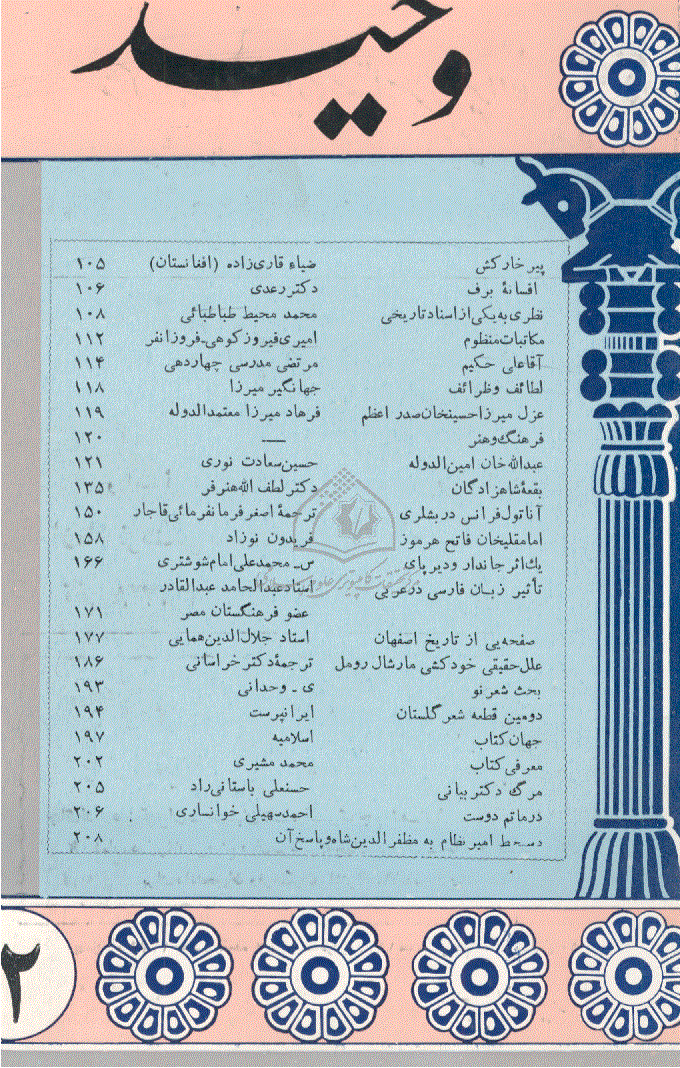 وحید
پیر خارکش ضیاء قاری‌زاده (افغانستان) ۱۰۵
افسانهٔ برف دکتر رعدی ۱۰۶
نظری به یکی از اسناد تاریخی محمد محیط طباطبائی ۱۰۸
مکاتبات منظوم امیری فیروزکوهی-فروزانفر ۱۱۲
آقاعلی حکیم مرتضی مدرسی چهاردهی ۱۱۴
لطائف وظرائف جهانگیر میرزا ۱۱۸
عزل میرزا حسینخان صدر اعظم فرهاد میرزا معتمدالدوله ۱۱۹
فرهنگ و هنر — ۱۲۰
عبدالله خان امین‌الدوله حسین سعادت نوری ۱۲۱
بقعهٔ شاهزادگان دکتر لطف الله هنرفر ۱۳۵
آناتول فرانس در بشاری ترجمهٔ اصغر فرمانفرمائی قاجار ۱۵۰
امامقلیخان فاتح هرموز فریدون نوزاد ۱۵۸
یك اثر جاندار و دیر پای س- محمدعلی امام شوشتری ۱۶۶
تأثیر زبان فارسی در عربی استاد عبدالحامد عبدالقادر
عضو فرهنگستان مصر ۱۷۱
صفحه‌یی از تاریخ اصفهان استاد جلال‌الدین همایی ۱۷۷
علل حقیقی خودکشی مارشال رومل ترجمهٔ دکتر خراسانی ۱۸۶
بحث شعر نو ی - وحدانی ۱۹۳
دومین قطعه شعر گلستان ایرانپرست ۱۹۴
جهان کتاب اسلامیه ۱۹۷
معرفی کتاب محمد مشیری ۲۰۲
مرگ دکتر بیانی حسنعلی باستانی راد ۲۰۵
درماتم دوست احمد سهیلی خوانساری ۲۰۶
دستخط امیر نظام به مظفرالدین‌شاه و پاسخ آن ۲۰۸
۲